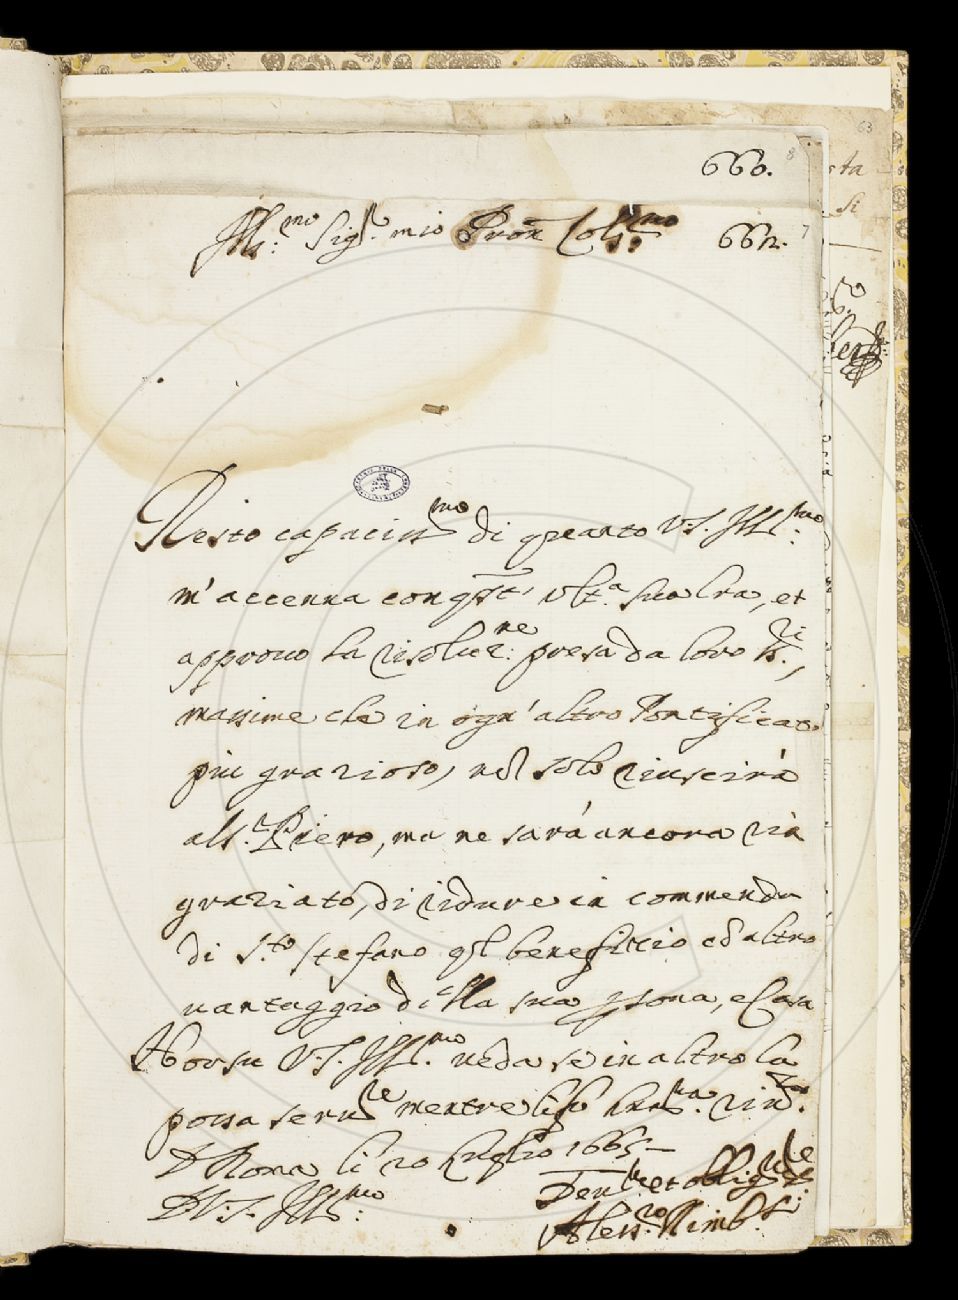 660.
Ill:mo Sig.r mio Pron Col:mo 662.
Resto capaciss.mo di quanto V.S. Ill:mo
m'accenna con ult.a sua lra, et
approuo la risoluz:ne presa da loro S.ri,
massime che in ogn'altro Pontificato
più grazioso, nõ solo riuscirà
al S.r Piero, ma ne sarà ancora rin
graziato, di ridure in commenda
di S.to Stefano q.l benefiticio cõ altro
vantaggio della sua psona, e Casa
Hor su V.S. Ill.mo veda se in altro la
possa seru.re mentre
D Roma li 20 Luglio 1665
D V.S. Ill:mo
Deu.o et obblig.
Aless.ro
63
8
7
ta
si